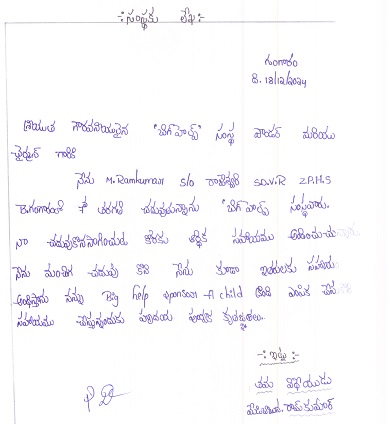 -: సంస్థకు లేఖ :-
గంగారం
ది. 13/12/2024
శ్రీయుత గౌరవనీయులైన "బిగ్ హెల్ప్" సంస్థ ఫౌండర్ మరియు
ఛైర్మన్ గారికి
నేను M. Ramkumar S/o రాజేశ్వర్ Z.P.H.S
గంగారంలో 7వ తరగతి చదువుతున్నాను "బిగ్ హెల్ప్ సంస్థవారు.
నా చదువుకొనసాగించుట కొరకు ఆర్థిక సహాయము అందించు
నేను మంచిగ చదువు కొని నేను కూడా ఇతరులకు సహాయ
అందిస్తాను నన్ను Big help sponsor - A child కింద ఎంపిక చేసి
సహాయము చేస్తున్నందుకు హృదయ పూర్వక కృతజ్ఞతలు..
-: ఇట్లు :-
తమ విధేయుడు
రామ్ కుమార్